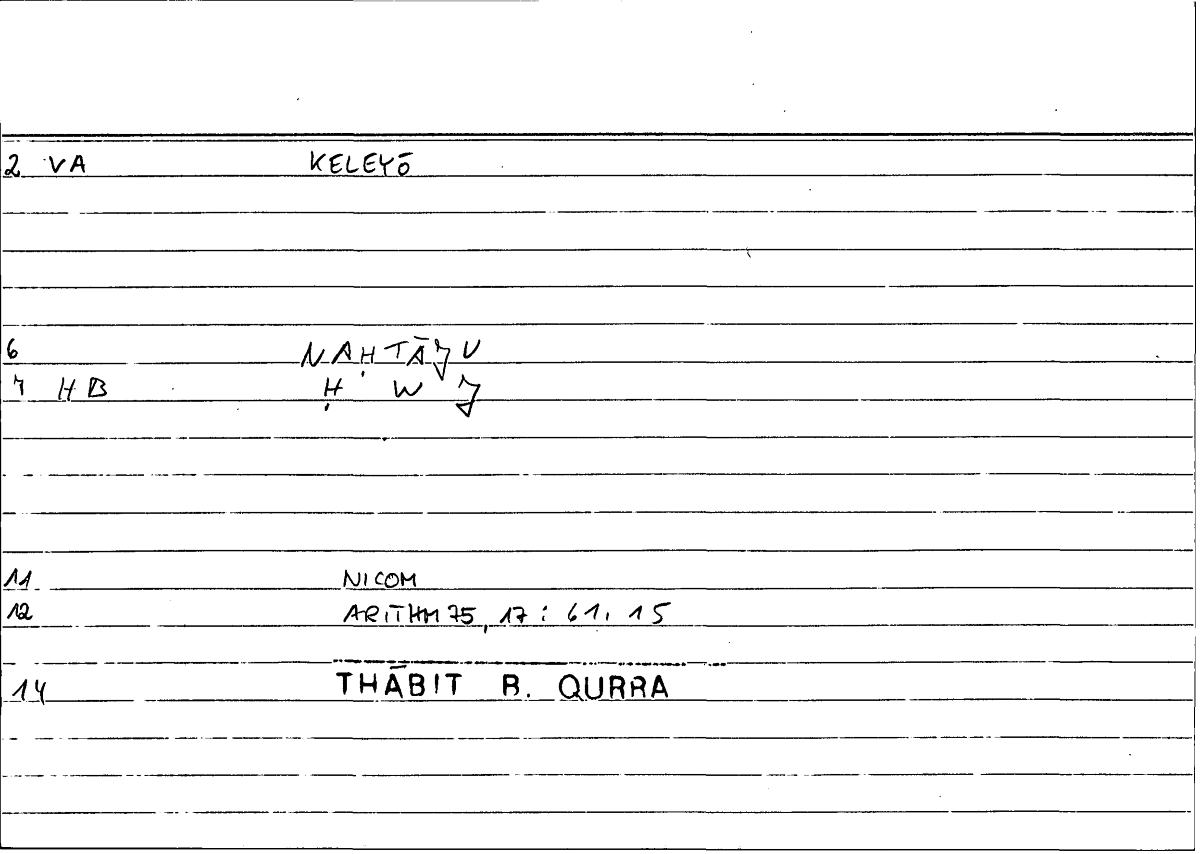 2 VA KELEYŌ
6 NAḤTĀǦU
7 HB Ḥ W Ǧ
11 NICOM
12 ARITHM 75, 17 : 61. 15
14 THĀBIT B. QURRA